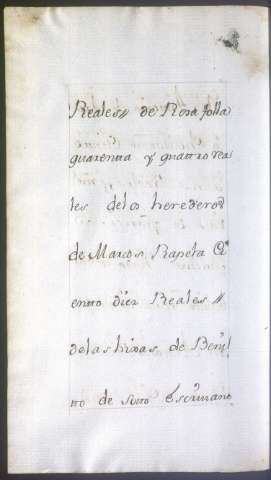 Reales // de Rosa folla
quarenta y quattro rea
les delos herederos
de Marcos Rapela Ci
ento diez Reales //
delas hixas de Beni
tto de soto Escrivano